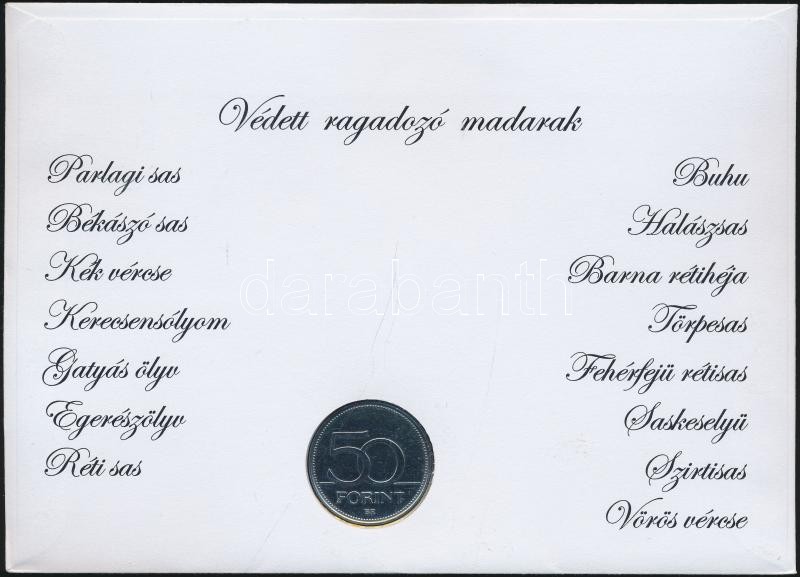 Védett ragadozó madarak
Parlagi sas
Békászó sas
Kék vércse
Kerecsensólyom
Gatyás ölyv
Egerészölyv
Réti sas
Buhu
Halászsas
Barna rétihéja
Törpesas
Fehérfejü rétisas
Saskeselyü
Szirtisas
Vörös vércse
darabanth
50
FORINT
BP.